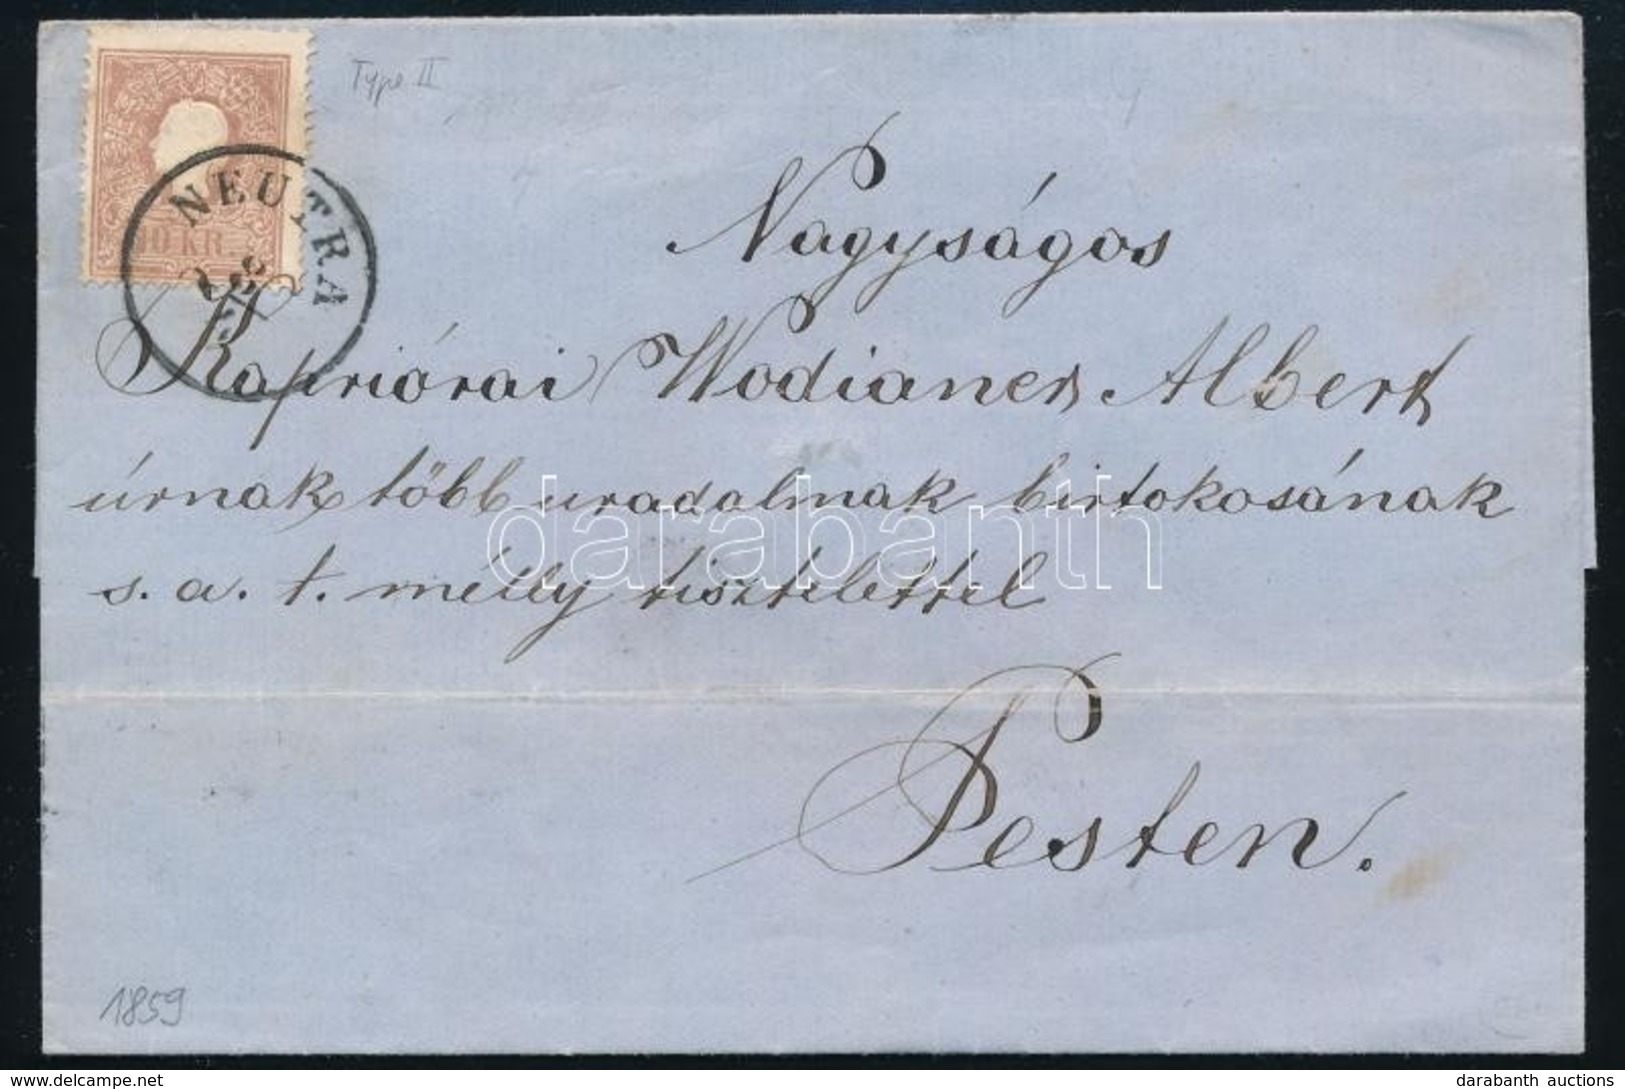 Type II
NEUTRA
10 KR
Nagyságos
Kapriórai Wodianer Albert
úrnak több uradalmak birtokosának
s. a. t. mélly tisztelettel
darabanth
Pesten.
1859
darabanth auctions